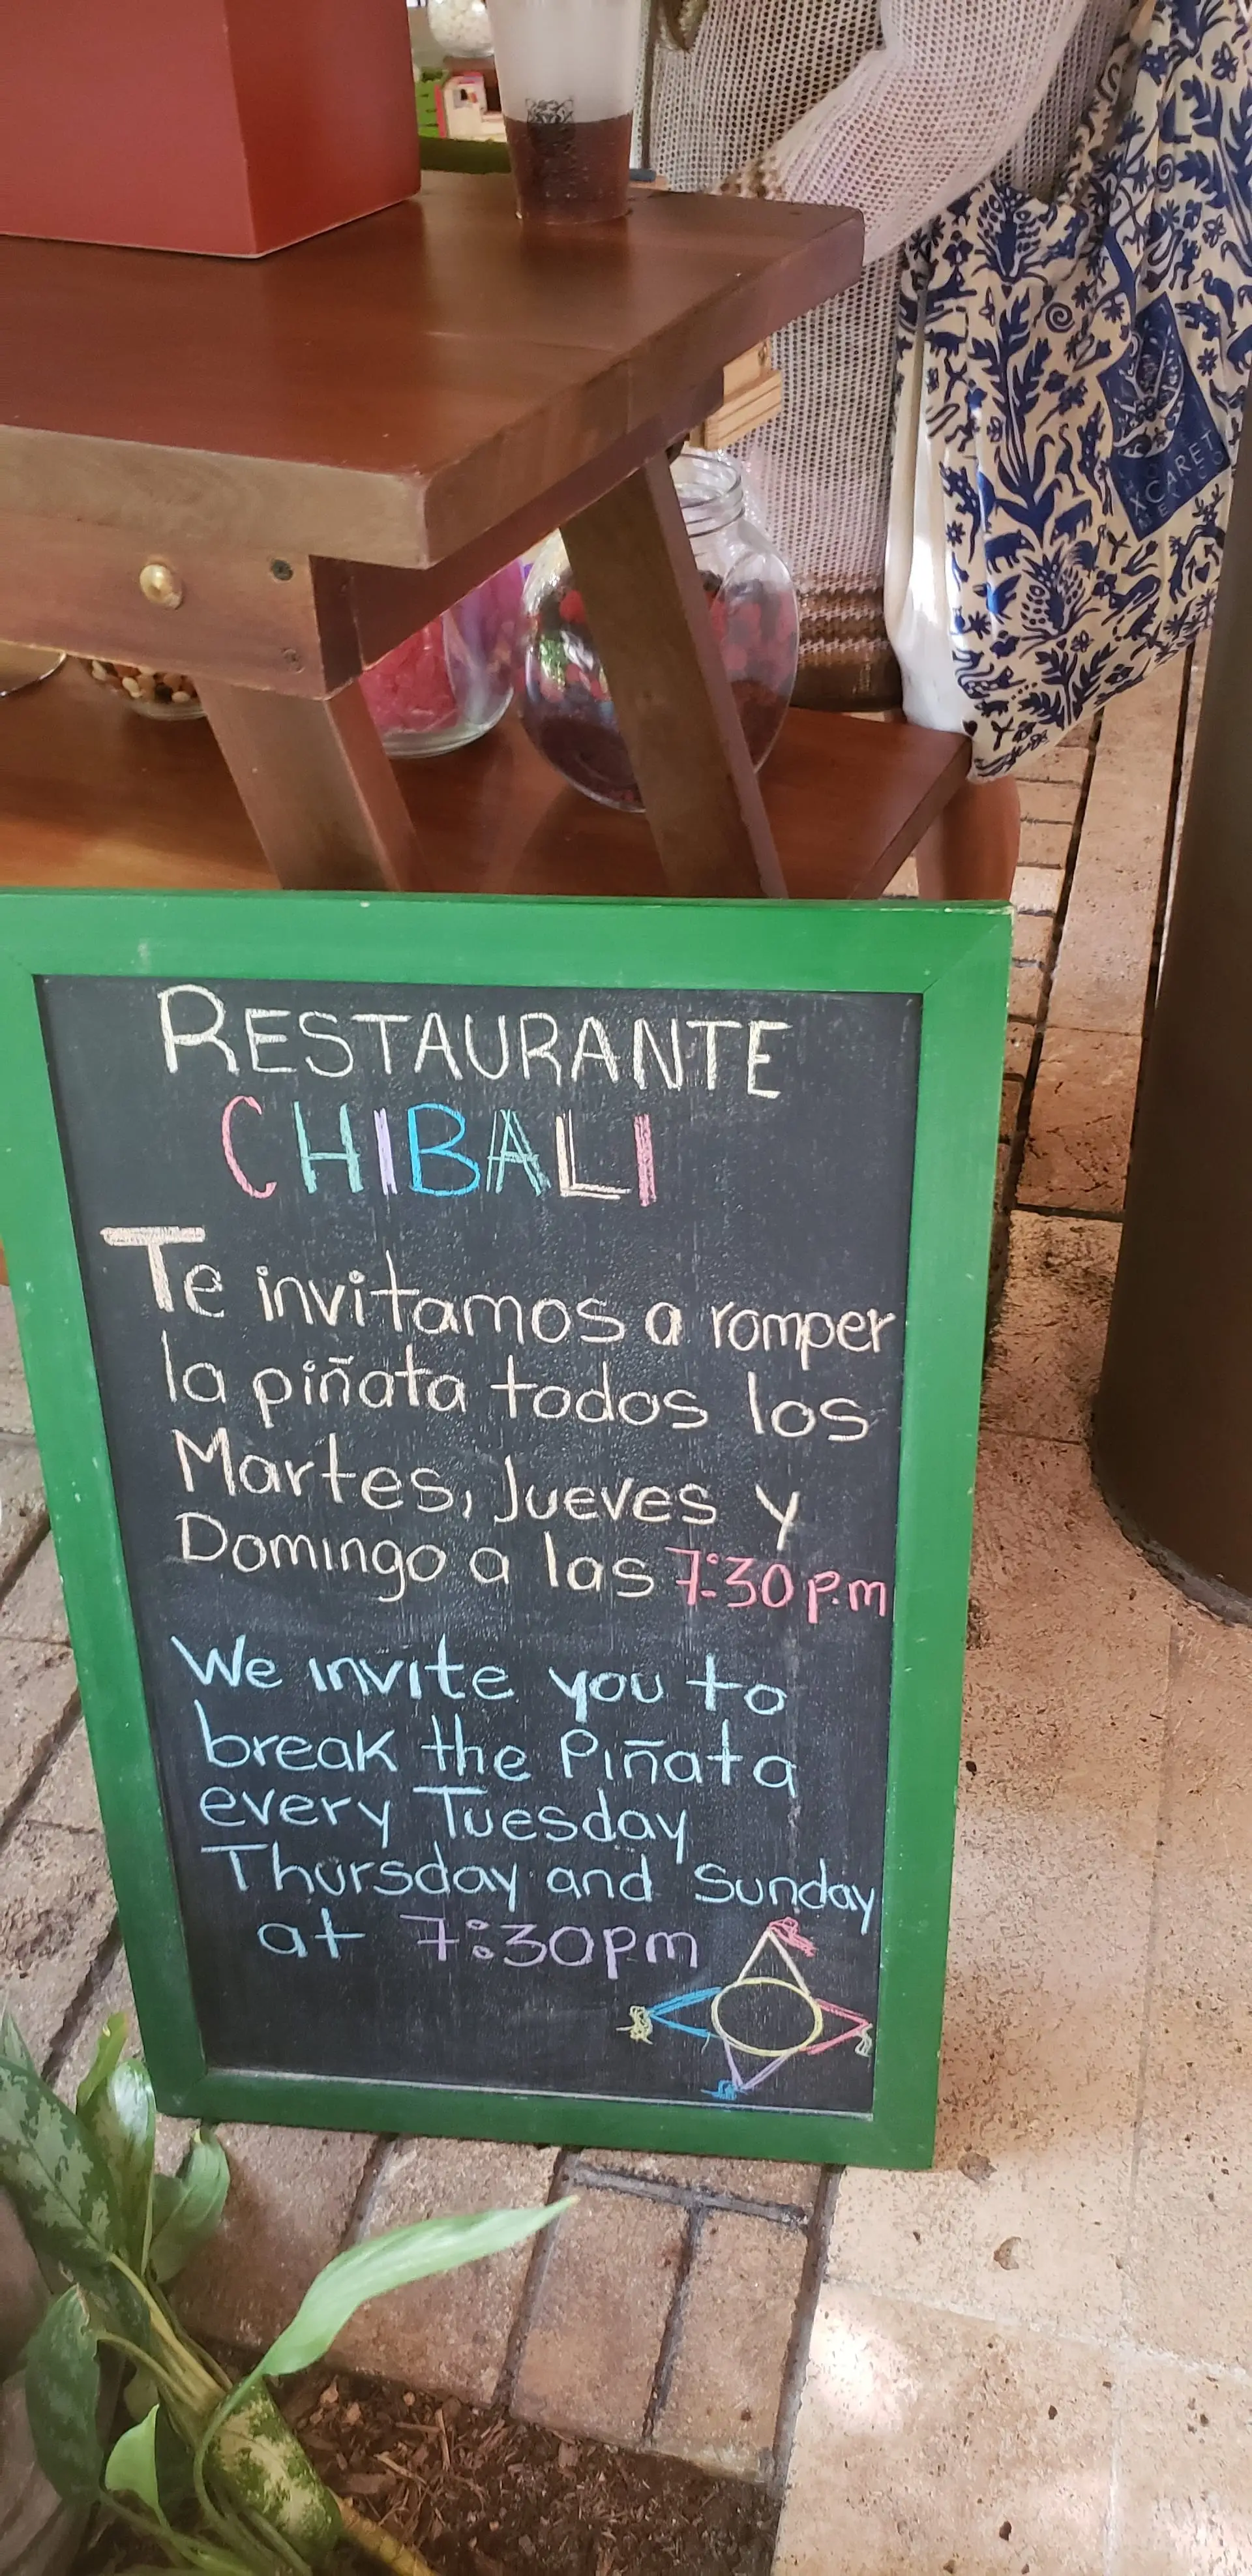 XCARET
MEXICO
RESTAURANTE
CHIBALI
Te invitamos a romper
la piñata todos los
Martes, Jueves y
Domingo a las 7:30 p.m
We invite you to
break the Piñata
every Tuesday
Thursday and Sunday
at 7:30pm